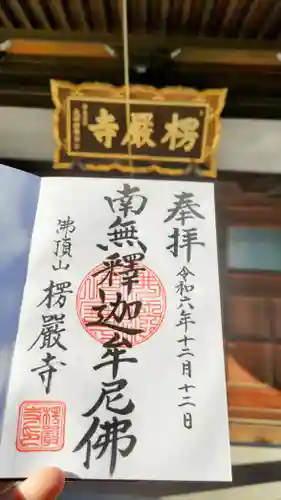 楞嚴寺
奉拝
令和六年十二月十二日
南無釋迦牟尼佛
佛頂山
楞嚴寺